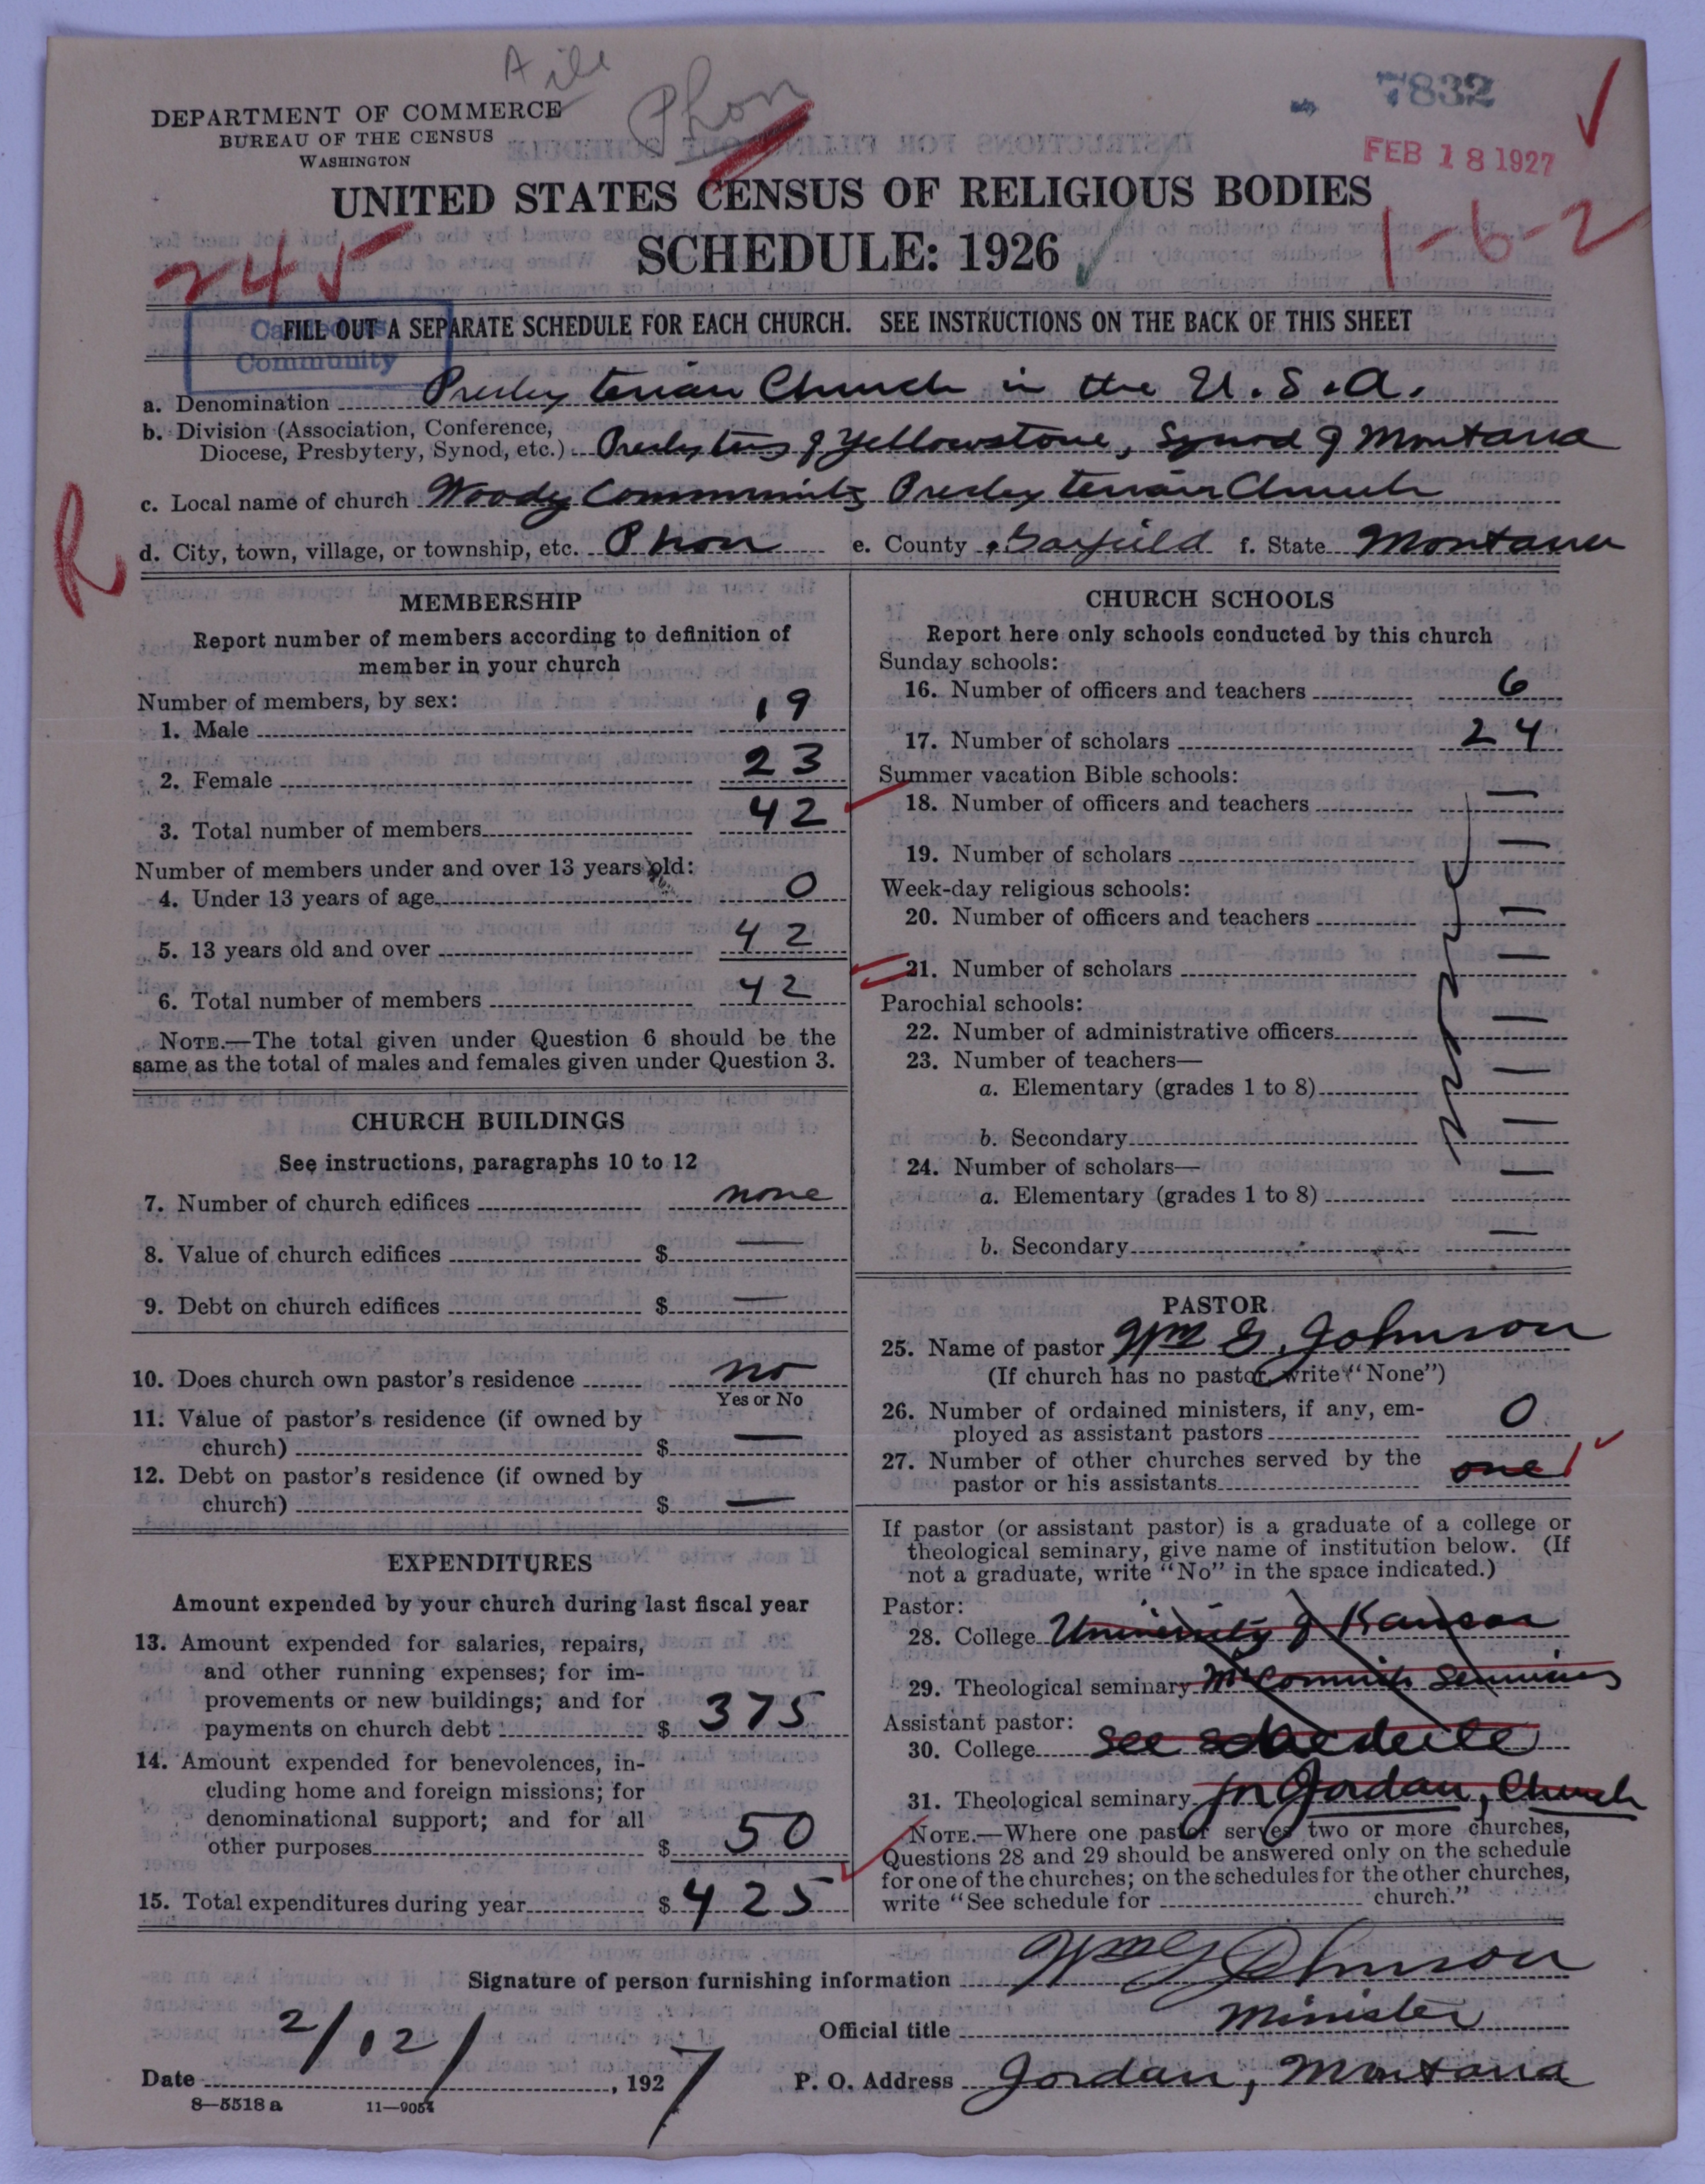 Phon
7832
DEPARTMENT OF COMMERCE
BUREAU OF THE CENSUS
WASHINGTON
FEB 18 1927
UNITED STATES CENSUS OF RELIGIOUS BODIES
SCHEDULE: 1926
245
1-6-2
FILL OUT A SEPARATE SCHEDULE FOR EACH CHURCH. SEE INSTRUCTIONS ON THE BACK OF THIS SHEET
Community
a. Denomination Presbyterian Church in the U.S.A.
b. Division (Association, Conference,
Diocese, Presbytery, Synod, etc.) Presbytery of Yellowstone, Synod of Montana
c. Local name of church Woody Community Presbyterian Church
R
d. City, town, village, or township, etc. Phon e. County Garfield f. State Montana
MEMBERSHIP
Report number of members according to definition of
member in your church
Number of members, by sex:
1. Male 19
2. Female 23
3. Total number of members 42
Number of members under and over 13 years old:
4. Under 13 years of age 0
5. 13 years old and over 42
6. Total number of members 42
NOTE.—The total given under Question 6 should be the
same as the total of males and females given under Question 3.
CHURCH BUILDINGS
See instructions, paragraphs 10 to 12
7. Number of church edifices none
8. Value of church edifices $ —
9. Debt on church edifices $ —
10. Does church own pastor's residence no
Yes or No
11. Value of pastor's residence (if owned by
church) $ —
12. Debt on pastor's residence (if owned by
church) $ —
EXPENDITURES
Amount expended by your church during last fiscal year
13. Amount expended for salaries, repairs,
and other running expenses; for im-
provements or new buildings; and for
payments on church debt $ 375
14. Amount expended for benevolences, in-
cluding home and foreign missions; for
denominational support; and for all
other purposes $ 50
15. Total expenditures during year $ 425
CHURCH SCHOOLS
Report here only schools conducted by this church
Sunday schools:
16. Number of officers and teachers 6
17. Number of scholars 24
Summer vacation Bible schools:
18. Number of officers and teachers —
19. Number of scholars —
Week-day religious schools:
20. Number of officers and teachers —
21. Number of scholars —
Parochial schools:
22. Number of administrative officers —
23. Number of teachers—
a. Elementary (grades 1 to 8) —
b. Secondary —
24. Number of scholars—
a. Elementary (grades 1 to 8) —
b. Secondary —
PASTOR
25. Name of pastor Wm G. Johnson
(If church has no pastor, write "None")
26. Number of ordained ministers, if any, em-
ployed as assistant pastors 0
27. Number of other churches served by the
pastor or his assistants one 1
If pastor (or assistant pastor) is a graduate of a college or
theological seminary, give name of institution below. (If
not a graduate, write "No" in the space indicated.)
Pastor:
28. College University of Kansas
29. Theological seminary McCormick Seminary
Assistant pastor:
30. College See schedule
31. Theological seminary for Jordan, Church
NOTE.—Where one pastor serves two or more churches,
Questions 28 and 29 should be answered only on the schedule
for one of the churches; on the schedules for the other churches,
write "See schedule for church."
Signature of person furnishing information Wm G Johnson
Official title Minister
Date 2/12/, 1927 P. O. Address Jordan, Montana
8—5518 a 11—9054